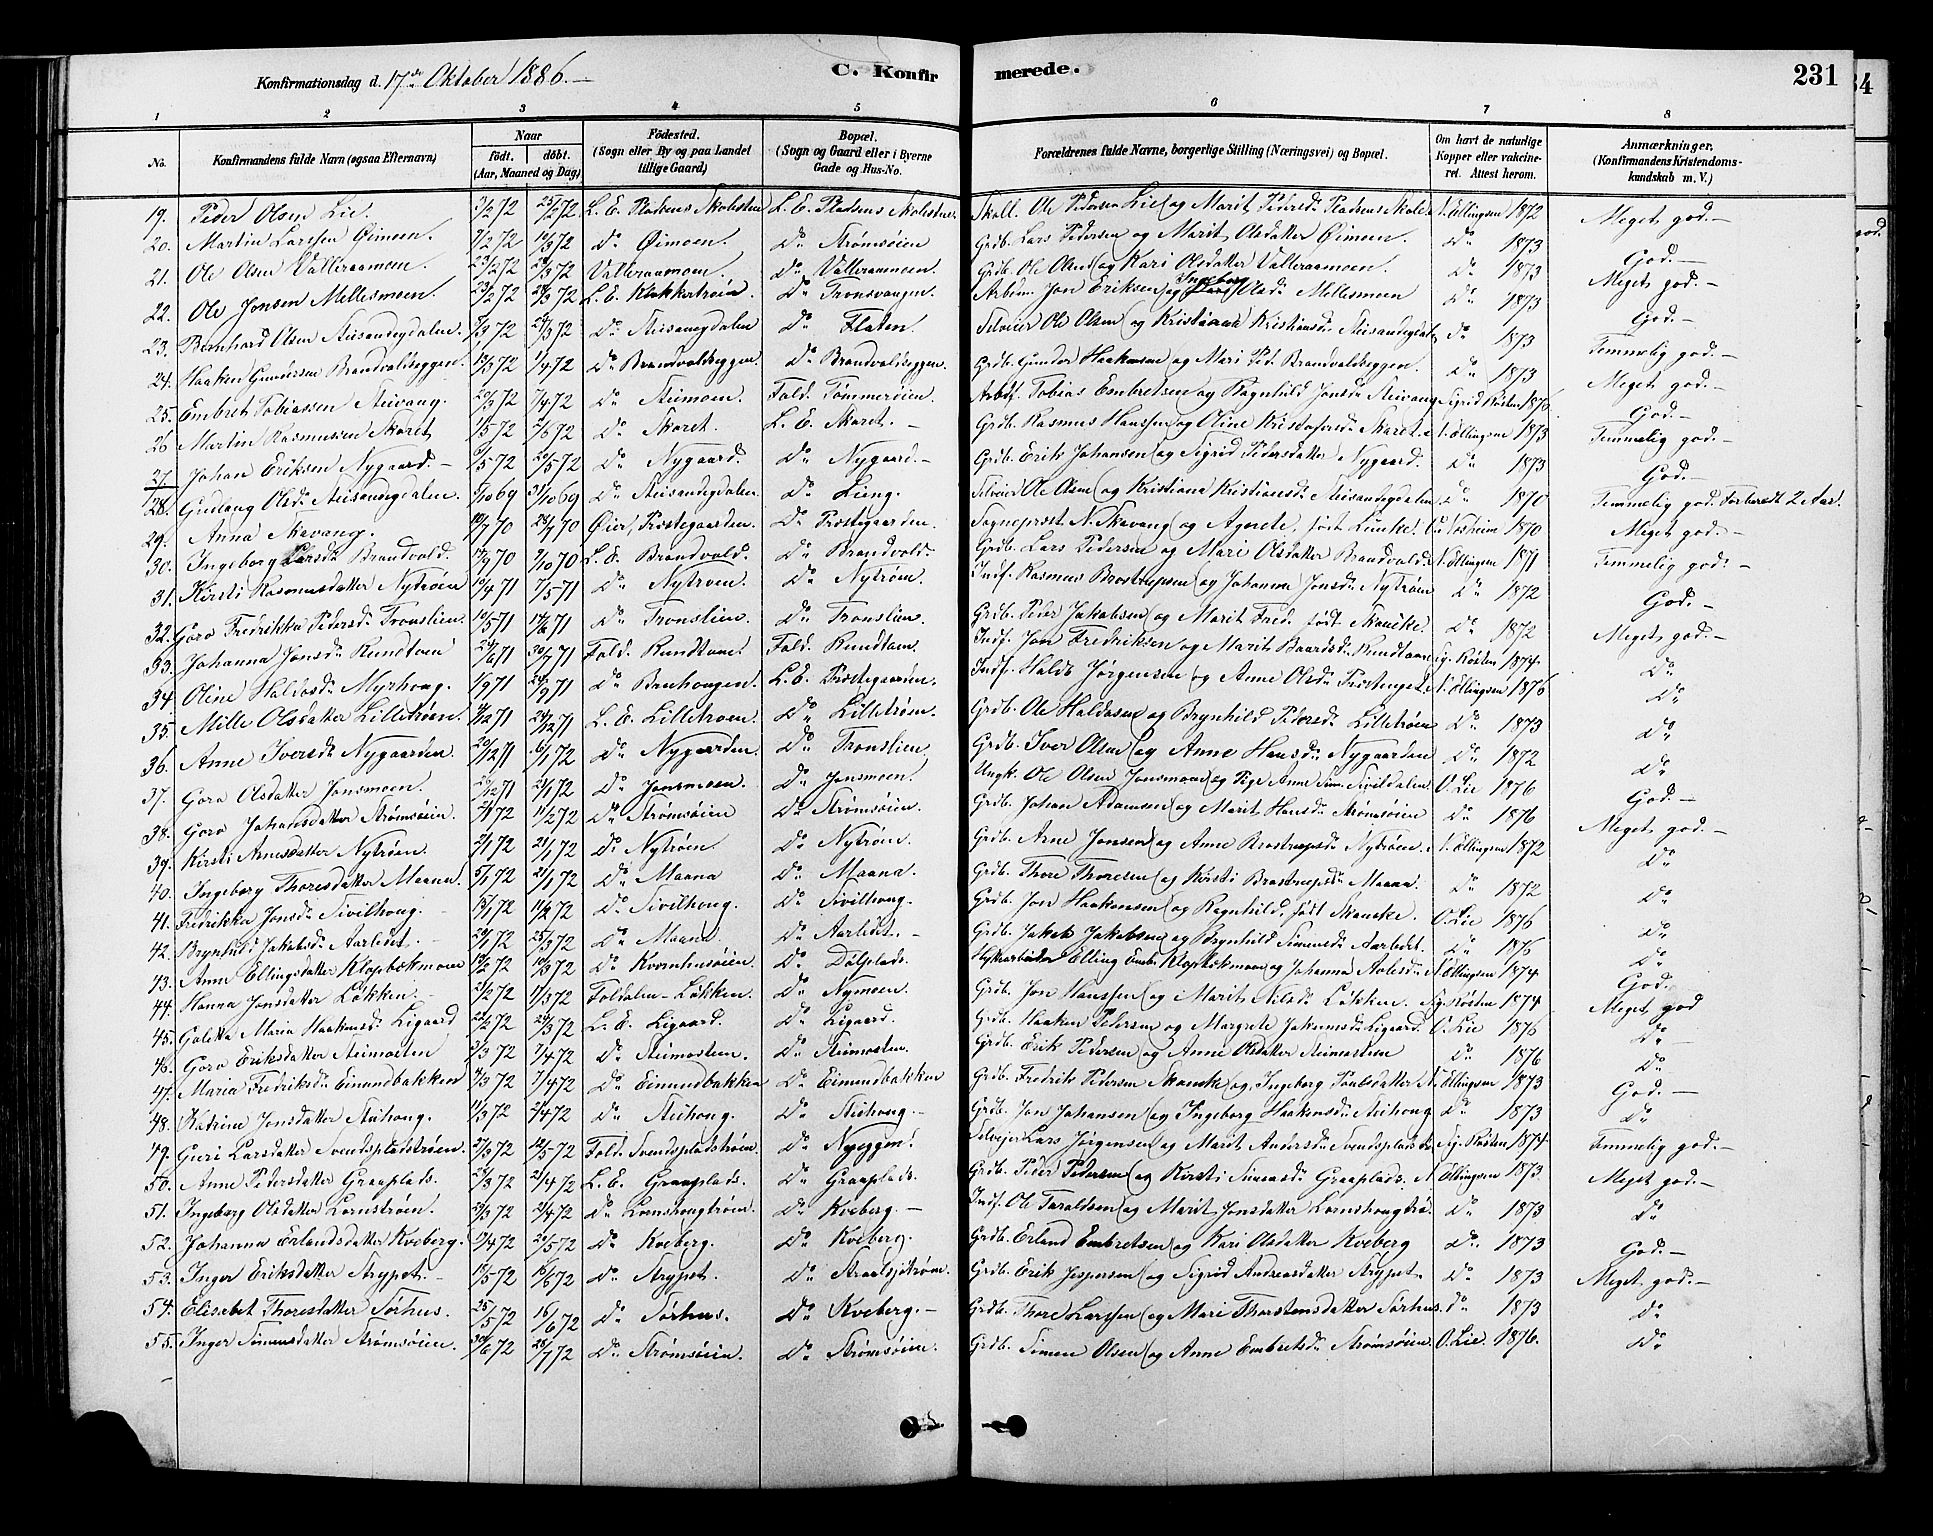 Konfirmationsdag d. 17de Oktober 1886.— C. Konfirmerede. 231 34
1 2 3 4 5 6 7 8
No. Konfirmandens fulde Navn (ogsaa Efternavn) Naar födt. döbt. (Aar, Maaned og Dag) Födested. (Sogn eller By og paa Landet tillige Gaard) Bopæl. (Sogn og Gaard eller i Byerne Gade og Hus-No. Forældrenes fulde Navne, borgerlige Stilling (Næringsvei) og Bopæl. Om havt de naturlige Kopper eller vakcineret. Attest herom. Anmærkninger, (Konfirmandens Kristendomskundskab m. V.)
19. Peder Olsen Lie. 3/2 72 25/2 72 L. E. L. E. Ole Pedersen Lie og Marit Pedersd. N. Ellingsen 1872 Meget god.—
20. Martin Larssen Øimoen. 7/2 72 10/3 72 do Øimoen. do Strømsøien Grdb. Lars Pedersen og Marit Olsdatter Øimoen. do 1873 God.—
21. Ole Olsen Valleraamoen. 23/2 72 Valleraamoen. do Valleraamoen. Grdb. Ole Olsen og Kari Olsdatter Valleraamoen. do 1873 Meget god.—
22. Ole Jonsen Mellesmoen. 23/2 72 L. E. Klokkertrøen. do Tronsvangen. Jon Eriksen og Ingeborg Olsd. Mellesmoen do 1873 God.—
23. Bernhard Olsen 5/3 72 do do Flaten. Ole Olsen og Kristiansd. do 1873 Temmelig god.—
24. Haaken Gundersen Brandvoldseggen. 13/3 72 1/4 72 do Brandvoldseggen. do Brandvoldseggen. Grdb. Gunder Haakensen og Mari Brandvoldseggen. do 1873 Meget god.—
25. Embret Tobiassen Steivang. 20/3 72 7/4 72 do Steimoen. Fold. Tømmerøien. Tobias Embretsen og Ragnhild Jonsd. Steivang Sigrid Røsten 1876. God.—
26 Martin Rasmussen Skoret 1/5 72 2/6 72 do Skoret. L. E. Skoret.— Grdb. Rasmus Hanssen og Oline Kristofersd. Skaret. N. Ellingsen 1873 Temmelig god.—
27. Johan Eriksen Nygaard.— 5/5 72 20/5 72 do Nygaard. do Nygaard.— Grdb. Erik Johansen og Sigrid Pedersdatter Nygaard. do 1873 God.—
28. Gudlaug Olsd. 5/10 69 31/10 69 do do Lieng. Ole Olsen og Kristiana Kristiansd. do 1870 Temmelig god. Forberedt 2 Aar.
29. Anna Skavang. 19/7 70 28/7 70 Øier, Præstegaarden. do Præstegaarden. Sogneprest N. Skavang og Agnete, født Lunke. 1870 Meget god.—
30. Ingeborg Larsd. Brandvold. 19/9 70 9/10 70 L. E. Brandvold. do Brandvold. Grdb. Lars Pedersen og Mari Olsdatter Brandvold. N. Ellingsen 1871 Temmelig god.—
31. Kirsti Rasmusdatter Nytrøen 10/4 71 7/5 71 do Nytrøen. do Nytrøen. Indf. Rasmus Brostrupsen og Johanna Jonsd. Nytrøen do 1872 God.—
32. Goro Fredrikka Pedersd. Tronslien. 10/5 71 17/6 71 do Tronslien. do Tronslien. Grdb. Peder Jakobsen og Marit Fred. født Skancke. do 1872 Meget god.—
33. Johanna Jonsd. Rundtom 25/6 71 30/7 71 Fold. Rundtom. Fold. Rundtom. Indf. Jon Fredriksen og Marit Baardsd. Rundtom Sig. Røsten 1874. do
34. Oline Haldosd. Myrhoug. 1/9 71 24/9 71 do Brenhaugen. L. E. Præstegaarden. Indf. Haldo Jørgensen og Anne Olsd. N. Ellingsen 1876 do
35. Mille Olsdatter Lilletrøen. 9/12 71 26/12 71 L. E. Lilletrøen. do Lilletrøen. Grdb. Ole Haldosen og Brynhild Pedersd. Lilletrøen do 1873 do
36. Anne Iversd. Nygaarden. 20/12 71 6/1 72 do Nygaarden. do Tronslien. Grdb. Iver Olsen og Anne Hansd. Nygaarden do 1872 do
37. Goro Olsdatter Jonsmoen. 20/12 71 21/1 72 do Jonsmoen. do Jonsmoen. Ungk. Ole Olsen Jonsmoen og Pige Anne Sim. Sivildalen O. Lie 1876 God.—
38. Goro Johansdatter Strømsøien. 2/1 72 11/2 72 do Strømsøien do Strømsøien. Grdb. Johan Adamsen og Marit Hansd. Strømsøien do 1876 Meget god.—
39. Kirsti Arnesdatter Nytrøen. 2/1 72 21/1 72 do Nytrøen do Nytrøen. Grdb. Arne Jonsen og Anne Brostrupsd. Nytrøen. N. Ellingsen 1872 do
40. Ingeborg Thoresdatter Maana. 5/1 72 21/1 72 do Maana do Maana. Grdb. Thore Thoresen og Kirsti Brostrupsd. Maana. do 1872 do
41. Fredrikka Jonsd. Sivilhoug. 11/2 72 do Sivilhoug. do Sivilhoug. Grdb. Jon Haakensen og Ragnhild, født Skancke. O. Lie 1876 do
42. Brynhild Jakobsd. Aarledet.— 20/1 72 25/3 72 do Maana. do Aarledet.— Grdb. Jakob Jakobsen og Brynhild Simensd. Aarledet. do 1876 do
43. Anne Ellingsdatter Klopbekmoen 19/2 72 10/3 72 do Kvernhusøien. do Dølplads. Elling Emb. Klopbekmoen og Johanna N. Ellingsen 1874 God.
44. Hanna Jonsdatter Løkken.— 21/2 72 1/3 72 Foldalen—Løkken. do Nymoen. Grdb. Jon Hanssen og Marit Nilsd. Løkken. Sig. Røsten 1874 Meget god
45. Goletta Maria Haakensd. Ligaard 22/2 72 25/3 72 L. E. Ligaard. do Ligaard. Grdb. Haaken Pedersen og Margrete Johannesd. Ligaard. O. Lie 1876 do
46. Goro Eriksdatter Steimosten 3/3 72 7/4 72 do Steimosten. do Steimosten. Grdb. Erik Pedersen og Anne Olsdatter Steimosten do 1876 do
47. Maria Fredriksd. Einundbakken 4/3 72 7/4 72 do Einundbakken do Einundbakken Grdb. Fredrik Pedersen Skancke og Ingeborg Paulsdatter N. Ellingsen 1873 God.—
48. Katrine Jonsdatter Steihoug. 11/3 72 2/4 72 do Steihoug. do Steihoug.— Grdb. Jon Johansen og Ingeborg Haakensd. Steihoug do 1873 do
49. Guri Larsdatter Svendspladstrøen. 27/3 72 12/5 72 Fold. Svendspladstrøen. do Nyeggen. Selveier Lars Jørgensen og Marit Andersd. Sig. Røsten 1874. Temmelig god.—
50. Anne Pedersdatter Graaplads. 29/3 72 21/4 72 L. E. Graaplads. do Graaplads. Grdb. Peder Pedersen og Kirsti Simensd. Graaplads. N. Ellingsen 1873 Meget god.—
51. Ingeborg Olsdatter Lornstrøen. 29/3 72 21/4 72 do Lornshougtrøen. do Kveberg.— Indf. Ole Taraldsen og Marit Jonsdatter Lornshougtrø. do 1873 do
52. Johanna Erlandsdatter Kveberg. 17/4 72 20/5 72 do Kveberg. do Kveberg. Grdb. Erland Embretsen og Kari Olsdatter Kveberg do 1873 God.—
53. Inger Eriksdatter Strypet.— 15/5 72 16/6 72 do Strypet. do Straalsjøtrøen. Grdb. Erik Jespersen og Sigrid Andreasdatter Strypet. do 1873 Meget god.—
54. Elisabet Thoresdatter Sørhus. 25/5 72 16/6 72 do Sørhus. do Kveberg.— Grdb. Thore Larssen og Mari Thorstensdatter Sørhus. do 1873 do
55. Inger Simensdatter Strømsøien. 30/6 72 28/7 72 do Strømsøien. do Strømsøien. Grdb. Simen Olsen og Anne Embretsd. Strømsøien. O. Lie. 1876. do